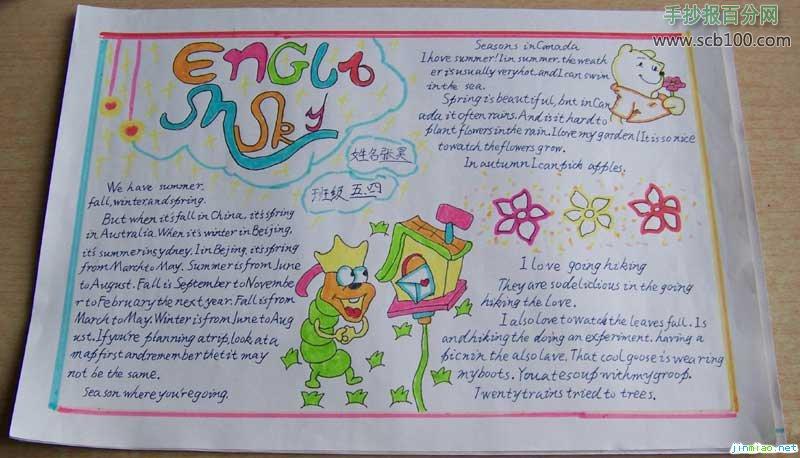 手抄报百分网
www.scb100.com
EnGLish Sky
姓名张昊
班级五四
Seasons in Canada
I hove summer! Iin summer. the weath
er is usually very hot. and I can swim
in the sea.
Spring is beautiful, bnt in Can
ada it often rains. And is it hard to
plant flowers in the rain. I love my garden! It is so nice
to watch the flowers grow.
In autumn I can pick apples.
We have summer.
fall, winter, and spring.
But when it's fall in China, it's spring
in Australia. When it's winter in Beijing,
it's summer in sydney. I in Bejing, it's spring
from March to May. Summer is from June
to August. Fall is September to Novembe
r to February the next year. Fall is from
March to May. Winter is from June to Aug
ust. If you're planning a trip, look at a
map first and remember thet it may
not be the same.
Season where you're going.
I love going hiking
They are sodelicious in the going
hiking the love.
I also love to watch the leaves fall. Is
and hiking the doing an experiment. having a
picnin the also lave. That cool goose is wearing
my boots. You ate soup with my groop.
Twenty trains tried to trees.
jinmiao.net